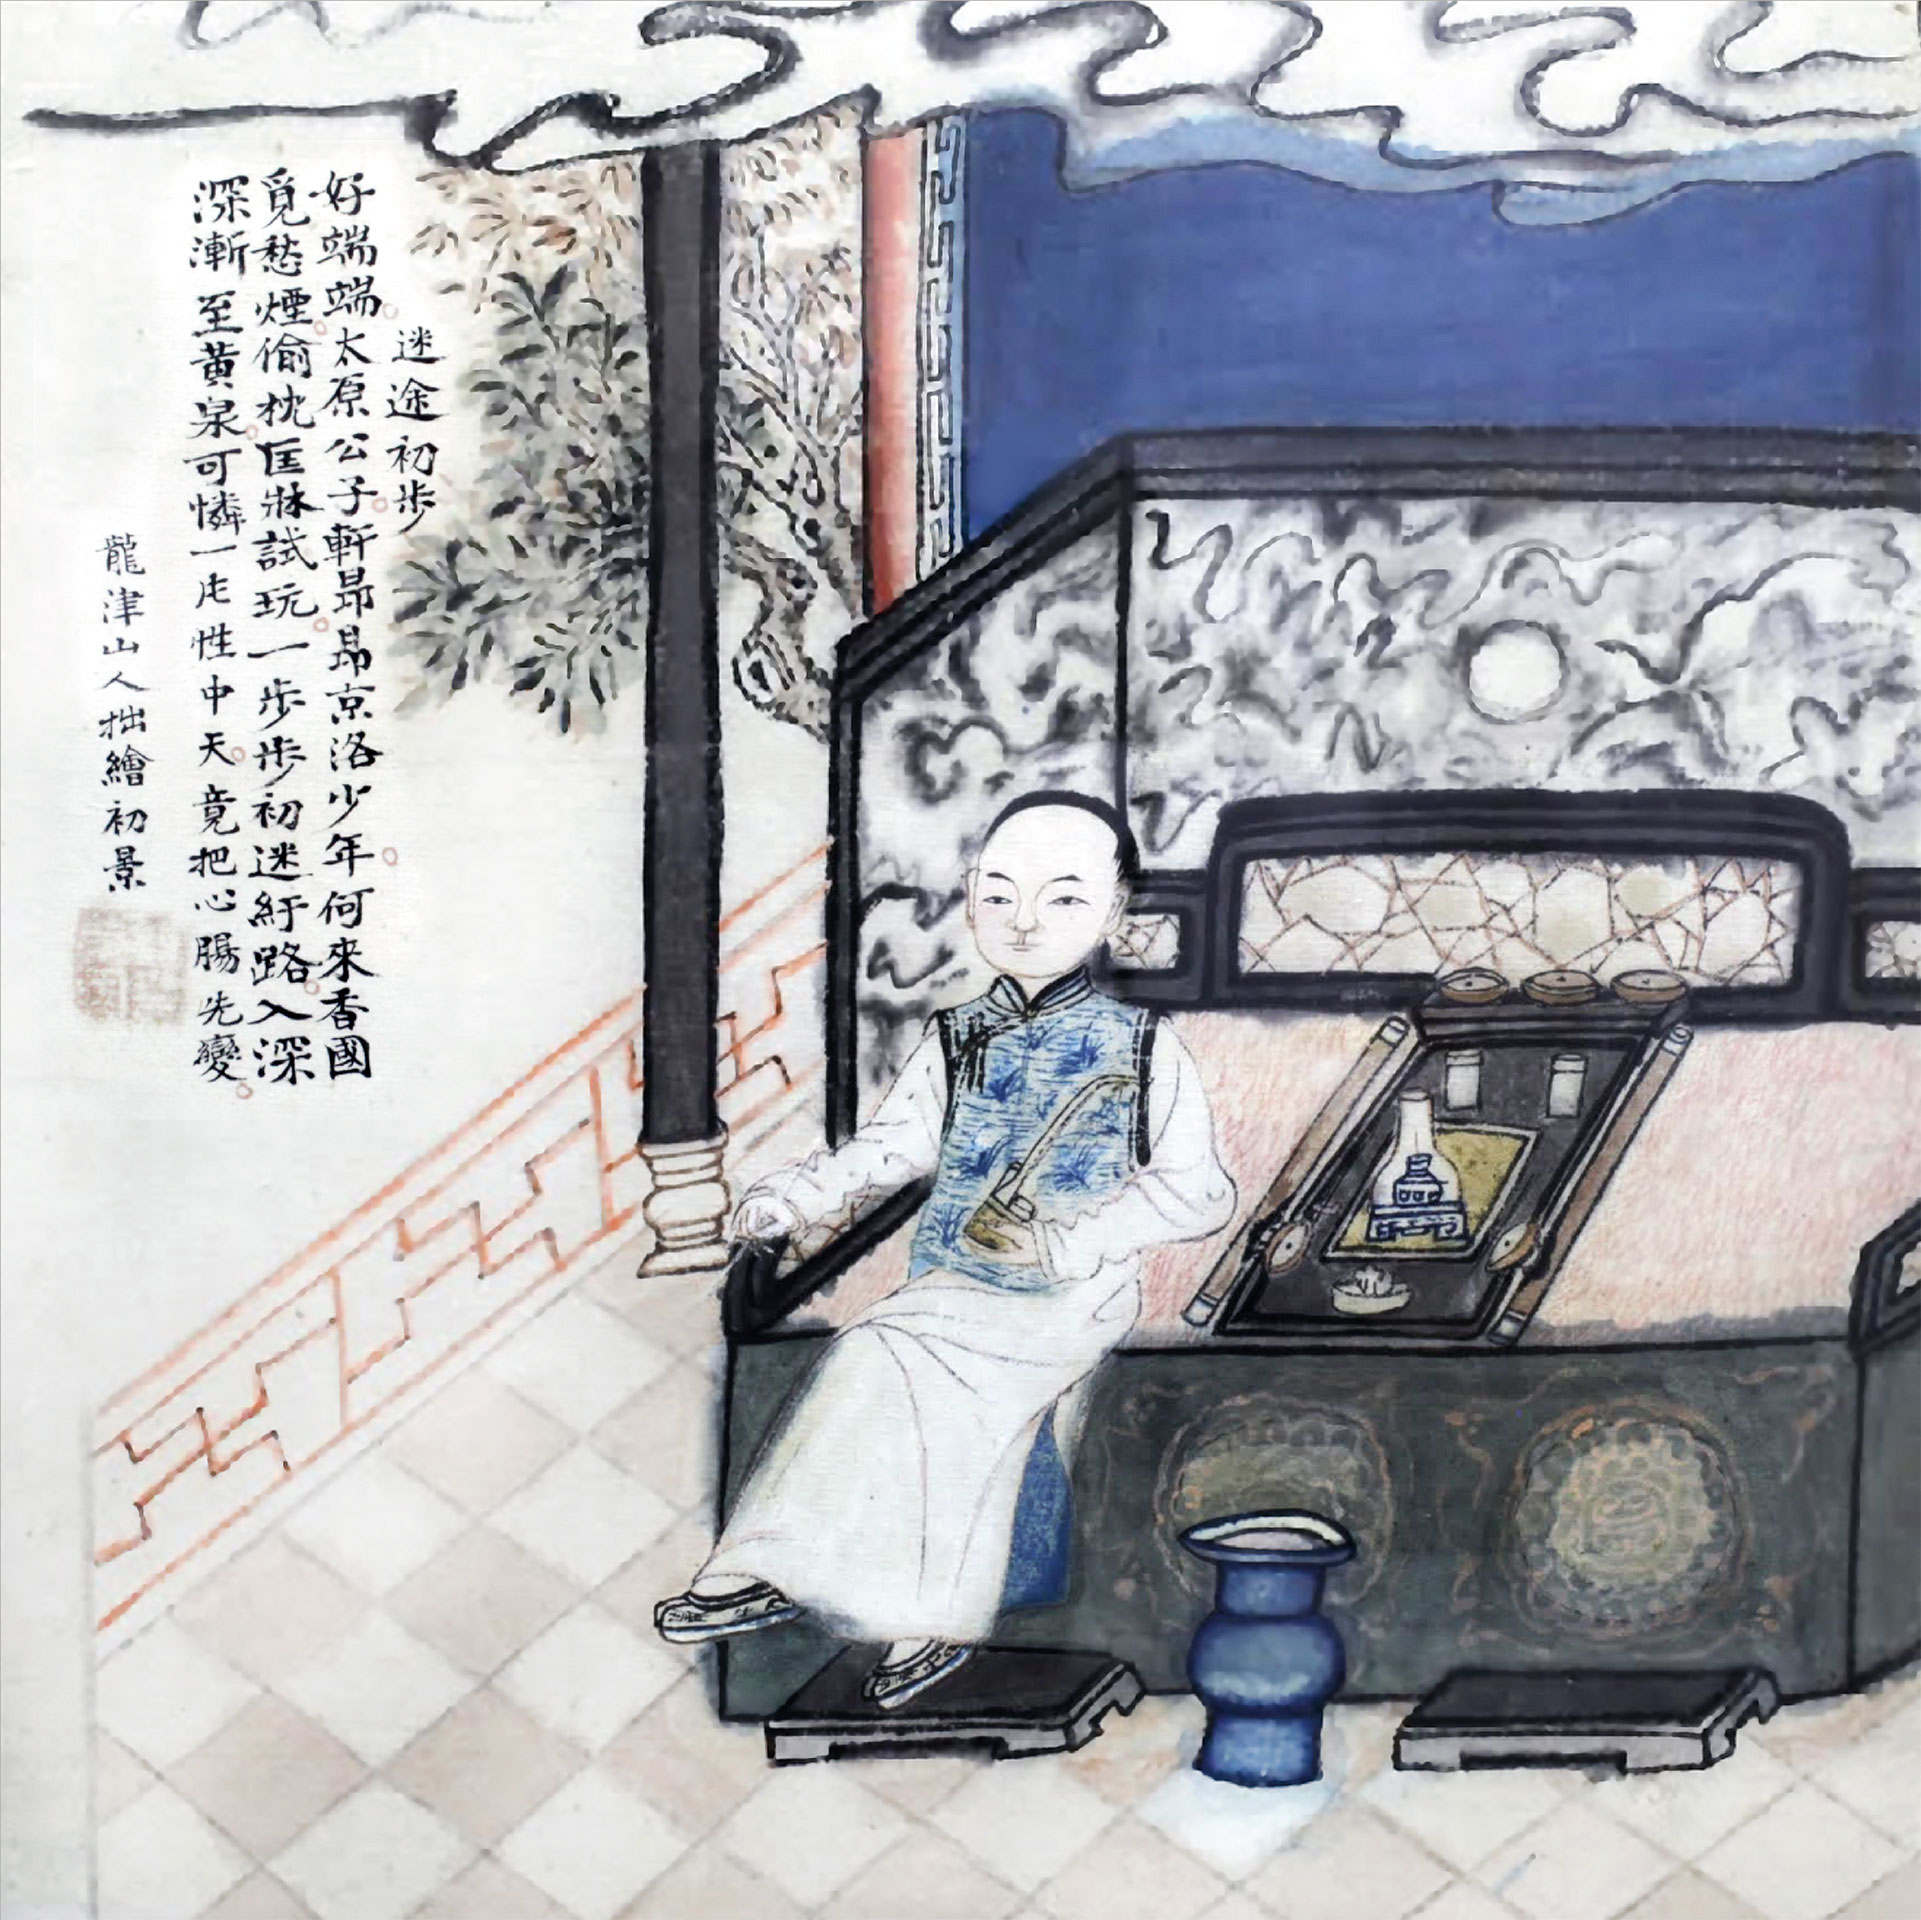 迷途初步
好端端太原公子軒昂昂京洛少年何來香國
覓愁煙偷枕匡牀試玩一步步初迷紆路入深
深漸至黃泉可憐一片性中天竟把心腸先變
龍津山人拙繪初景